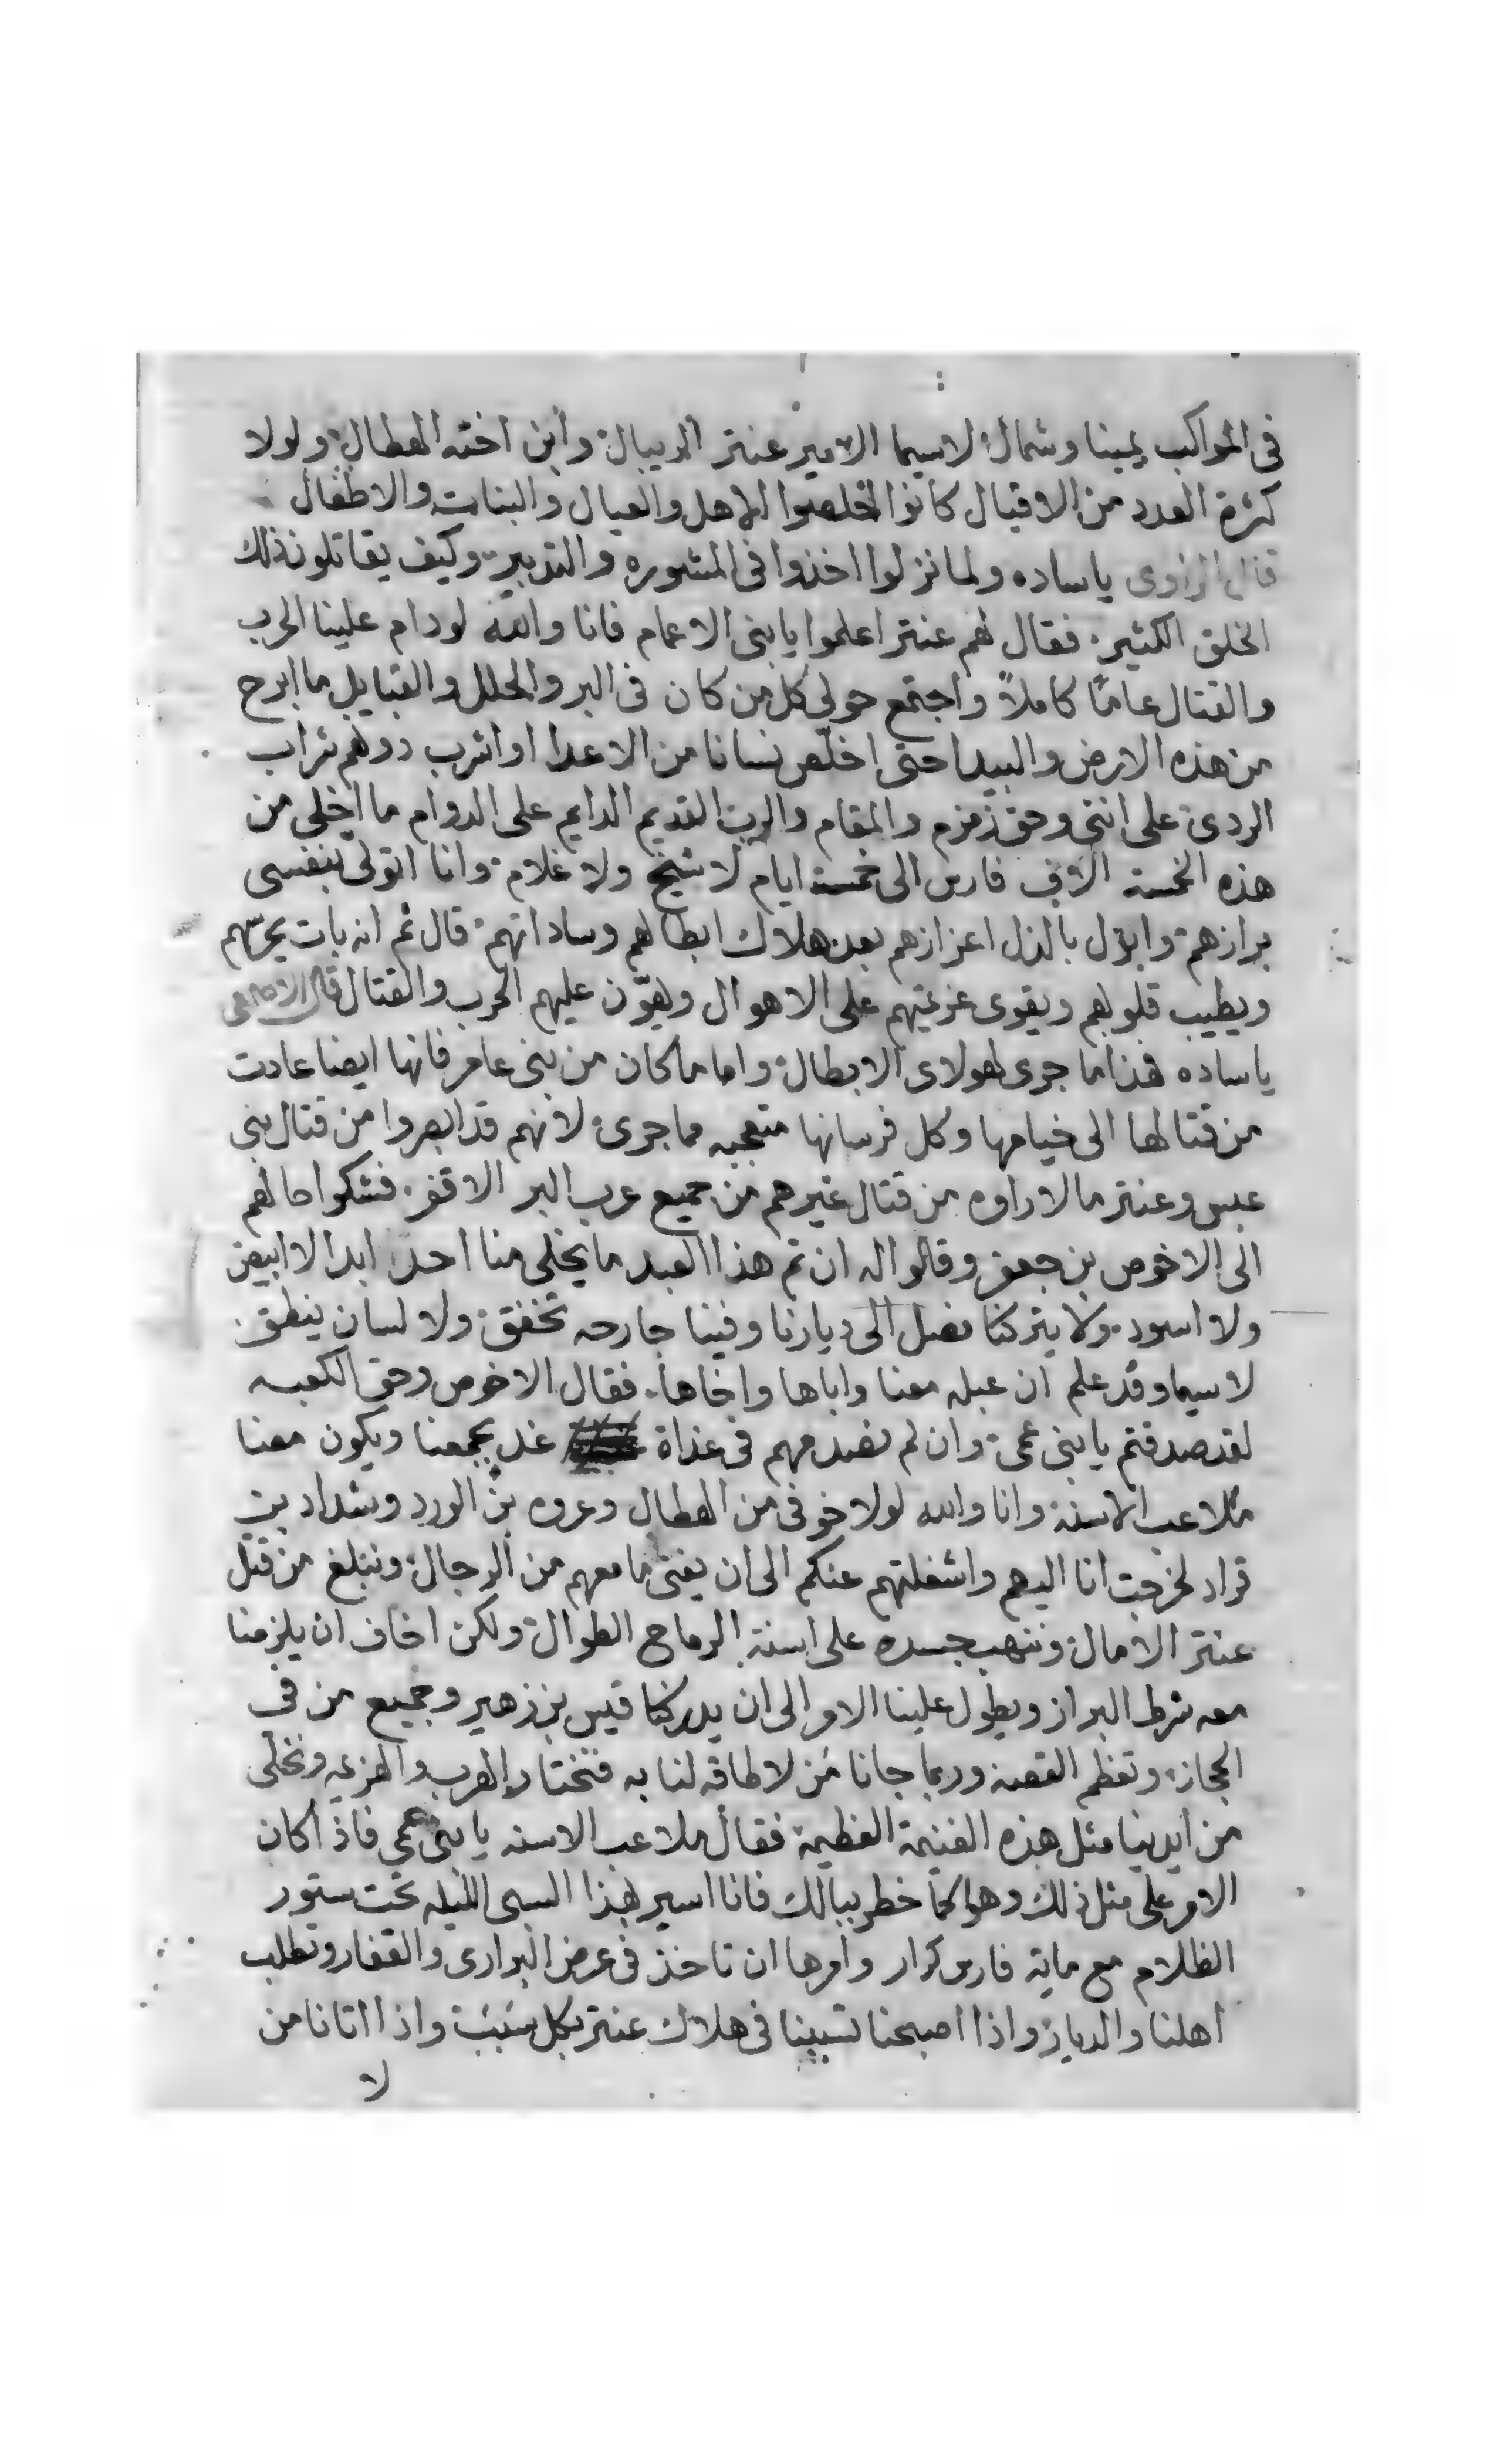 في المواكب يمينا وشمال لاسيما الامير عنتر الريبال وابن اخته الهطال ولولا
كثرة العدد من الاقيال كانوا اخلصوا الاهل والعيال والبنات والاطفال
قال الراوى ياساده ولما نزلوا اخذوا فى المشوره والتدبير وكيف يقاتلون ذلك
الخلق الكثير فقال لهم عنتر اعلموا يا بنى الاعمام فانا والله لو دام علينا الحرب
والقتال عامًا كاملاً واجتمع حولي كل من كان فى البر والحلل والقبايل ما ابرح
من هذه الارض والبيدا حتى اخلّص نسانا من الاعدا او اشرب دونهم شراب
الردى على اننى وحق زمزم والمقام والرب القديم الدايم على الدوام ما اخلى من
هذه الخمسة الاف فارس الى خمسة ايام لا شيخ ولا غلام وانا اتولى بنفسى
برازهم وابدل بالذل اعزازهم بعد هلاك ابطالهم وساداتهم قال ثم انه بات يحرسهم
ويطيب قلوبهم ويقوى عزيمتهم على الاهوال ويهوّن عليهم الحرب والقتال قال الاصمعى
ياساده هذا ما جرى لهولاى الابطال واما ما كان من بنى عامر فانها ايضا عادت
من قتالها الى خيامها وكل فرسانها متعجبه مما جرى لانهم قد ابصروا من قتال بنى
عبس وعنتر ما لا راوه من قتال غيرهم من جميع عرب البر الاقفر فشكوا حالهم
الى الاخوص بن جعفر وقالوا له ان تم هذا العبد ما يخلى منا احدا ابدا لا ابيض
ولا اسود ولا يتركنا نصل الى ديارنا وفينا جارحه تخفق ولا لسان ينطق
لاسيما وقد علم ان عبله معنا واباها واخاها فقال الاخوص وحق الكعبه
لقد صدقتم يا بنى عمى وان لم نصدمهم فى غداة غد بجمعنا ويكون معنا
ملاعب الاسنة وانا والله لولا خوفى من الهطال وعروه بن الورد وشداد بن
قراد لخرجت انا اليهم واشغلتهم عنكم الى ان يفنى ما معهم من الرجال ونبلغ من قتل
عنتر الامال وننهب جسده على اسنة الرماح الطوال ولكن اخاف ان يلزمنا
معه شرط البراز ويطول علينا الامر الى ان يدركنا قيس بن زهير وجميع من فى
الحجاز وتعظم القصة وربما جانا مَن لا طاقه لنا به فنختار الهرب والهزيمه ونخلى
من ايدينا مثل هذه الغنيمة العظيمة فقال ملاعب الاسنه يا بنى عمى فاذا كان
الامر على مثل ذلك وهو كما خطر ببالك فانا اسير هذا السبى الليله تحت ستور
الظلام مع ماية فارس كرار وامرها ان تاخذ فى عرض البرارى والقفار وتطلب
اهلنا والديار واذا اصبحنا تسببنا فى هلاك عنتر بكل سَبَبْ واذا اتانا من
لا